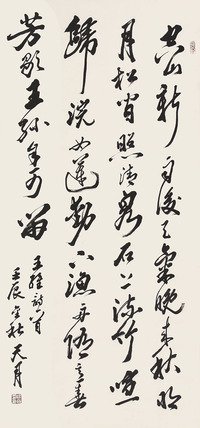 空山新雨後天氣晚来秋明
月松間照清泉石上流竹喧
歸浣女蓮動下漁舟随意春
芳歇王孫自可留
王維詩一首
壬辰金秋天月